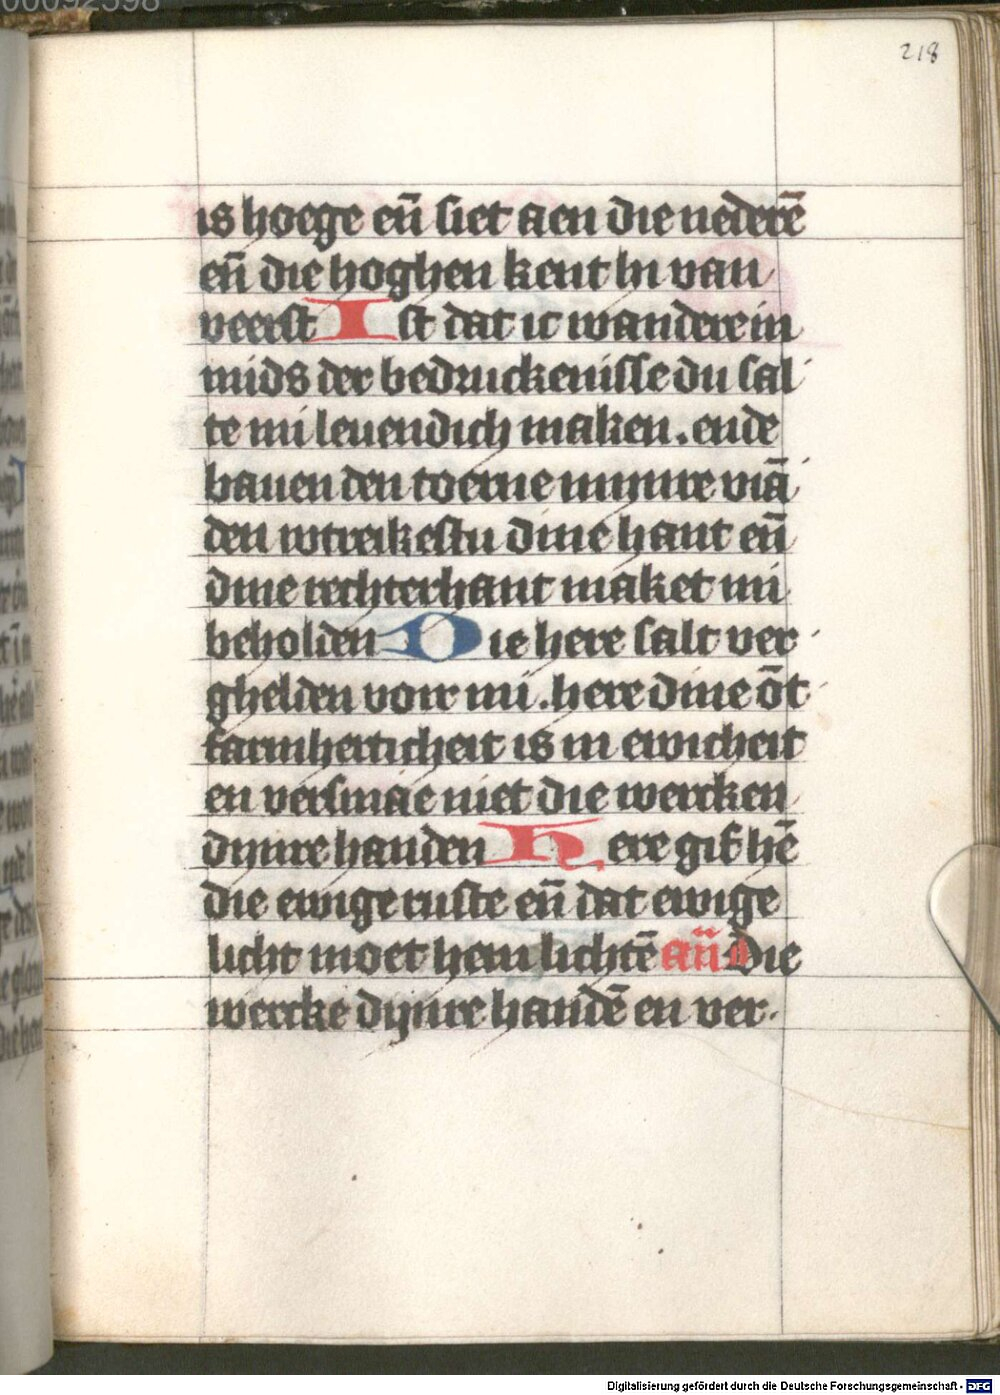 218
is hoege eñ siet aen die nederē
eñ die hoghen kent hi van
veerst Ist dat ic wandere in
mids der bedruckenisse du sal
te mi leuendich maken. ende
bauen den toerne mynre viā
den wtreikestu dine hant eñ
dine rechterhant maket mi
beholden Die here salt ver
ghelden voir mi. here dine ōt
farmherticheit is in ewicheit
en versmae niet die wercken
dynre handen Here gif hē
die ewige ruste eñ dat ewige
licht moet hem lichtē añ Die
wercke dynre handē en ver
Digitalisierung gefördert durch die Deutsche Forschungsgemeinschaft - DFG